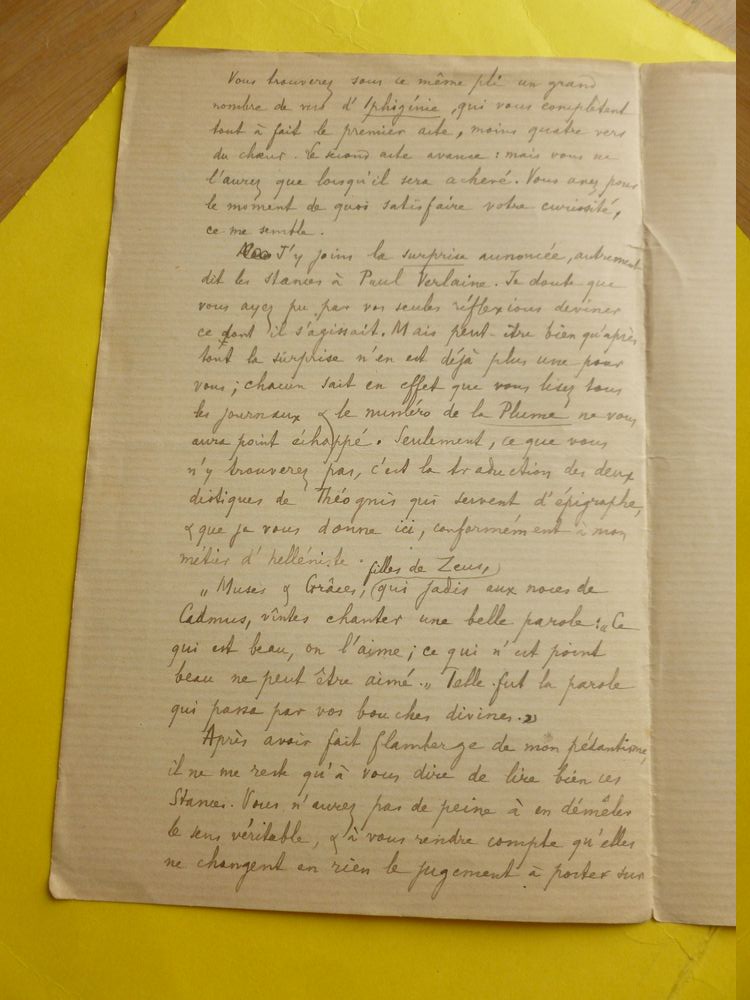 Vous trouverez sous ce même pli un grand
nombre de vers d'Iphigénie, qui vous complètent
tout à fait le premier acte, moins quatre vers
du chœur. Le second acte avance : mais vous ne
l'aurez que lorsqu'il sera achevé. Vous avez pour
le moment de quoi satisfaire votre curiosité,
ce me semble.
J'y joins la surprise annoncée, autrement
dit les stances à Paul Verlaine. Je doute que
vous ayez pu par vos seules réflexions deviner
ce dont il s'agissait. Mais peut-être bien qu'après
tout la surprise n'en est déjà plus une pour
vous ; chacun sait en effet que vous lisez tous
les journaux & le numéro de la Plume ne vous
aura point échappé. Seulement, ce que vous
n'y trouverez pas, c'est la traduction des deux
distiques de Théognis qui servent d'épigraphe,
& que je vous donne ici, conformément à mon
métier d'helléniste.
„ Muses & Grâces, filles de Zeus, qui jadis aux noces de
Cadmus, vîntes chanter une belle parole : „ Ce
qui est beau, on l'aime ; ce qui n'est point
beau ne peut être aimé. „ Telle fut la parole
qui passa par vos bouches divines. »
Après avoir fait flamberge de mon pédantisme,
il ne me reste qu'à vous dire de lire bien ces
Stances. Vous n'aurez pas de peine à en démêler
le sens véritable, & à vous rendre compte qu'elles
ne changent en rien le jugement à porter sur